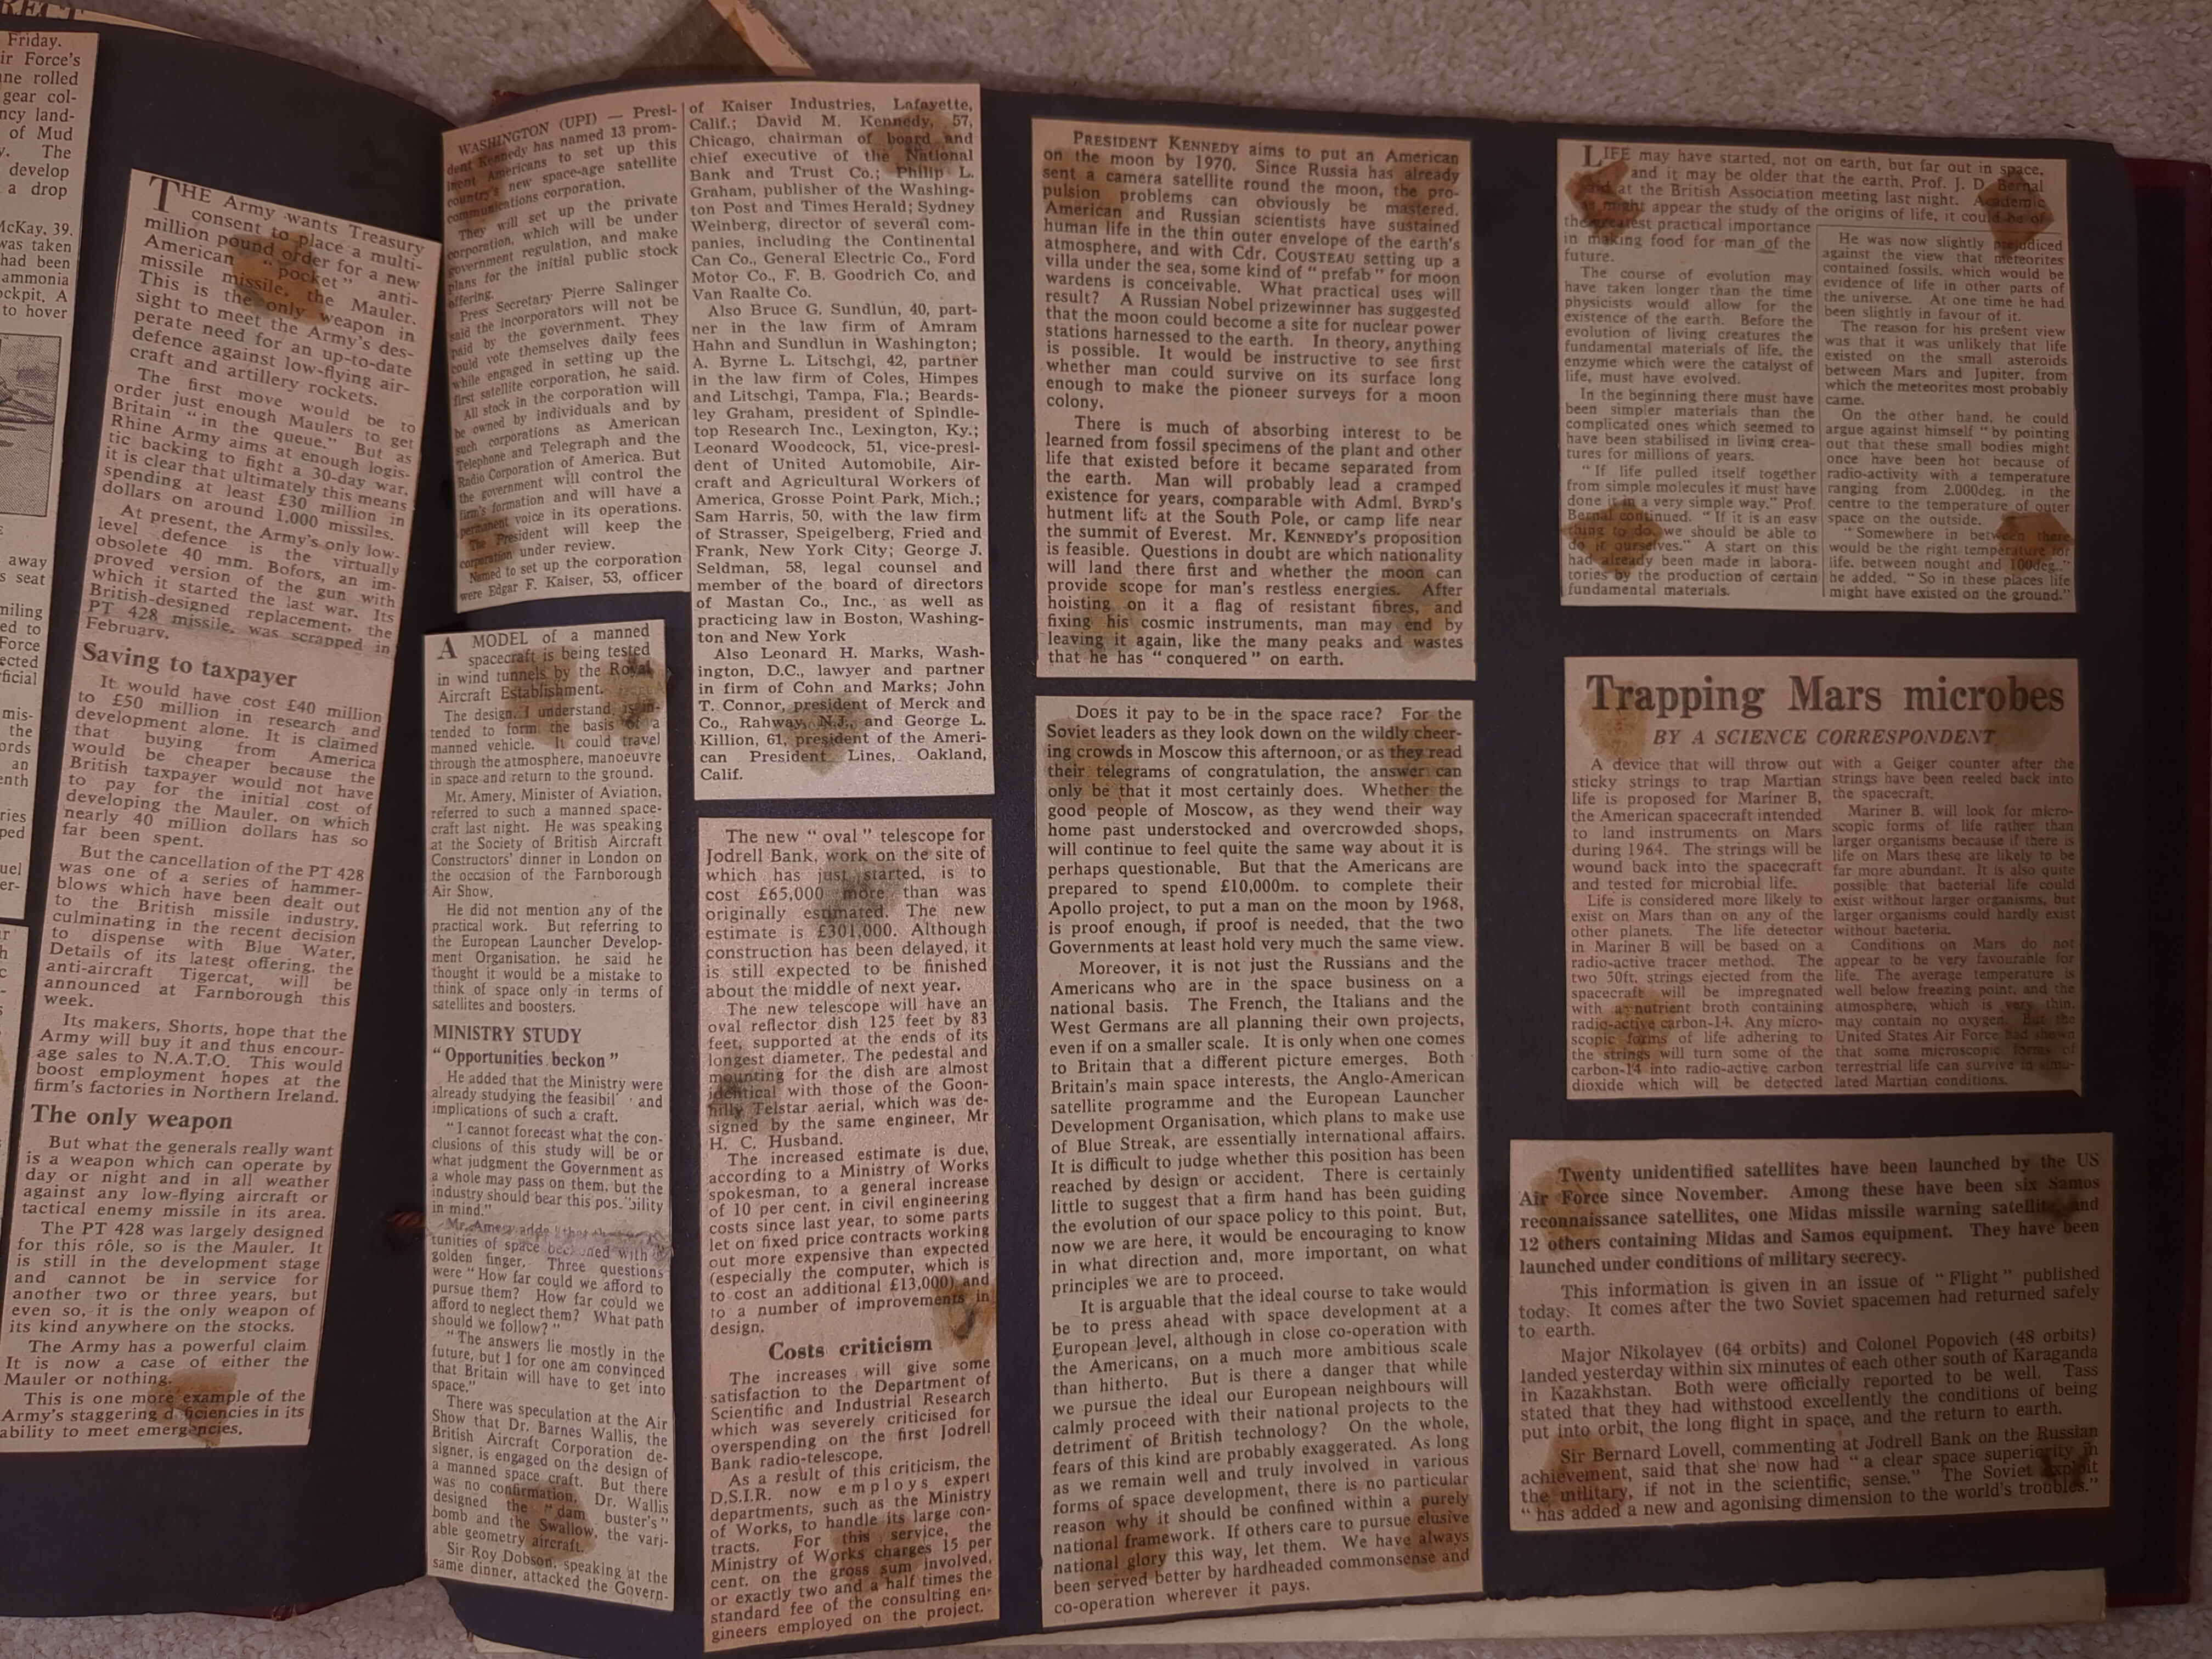 Friday.
ir Force's
ne rolled
gear col-
ncy land-
of Mud
y. The
develop
a drop
McKay, 39.
was taken
had been
ammonia
ockpit. A
to hover
away
s seat
miling
ed to
Force
ected
ficial
mis-
the
ords
an
enth
ries
ped
uel
er-
THE Army wants Treasury
consent to place a multi-
million pound order for a new
American "pocket" anti-
missile missile, the Mauler.
This is the only weapon in
sight to meet the Army's des-
perate need for an up-to-date
defence against low-flying air-
craft and artillery rockets.
The first move would be to
order just enough Maulers to get
Britain "in the queue." But as
Rhine Army aims at enough logis-
tic backing to fight a 30-day war,
it is clear that ultimately this means
spending at least £30 million in
dollars on around 1,000 missiles.
At present, the Army's only low-
level defence is the virtually
obsolete 40 mm. Bofors, an im-
proved version of the gun with
which it started the last war. Its
British-designed replacement, the
PT 428 missile, was scrapped in
February.
Saving to taxpayer
It would have cost £40 million
to £50 million in research and
development alone. It is claimed
that buying from America
would be cheaper because the
British taxpayer would not have
to pay for the initial cost of
developing the Mauler, on which
nearly 40 million dollars has so
far been spent.
But the cancellation of the PT 428
was one of a series of hammer-
blows which have been dealt out
to the British missile industry,
culminating in the recent decision
to dispense with Blue Water.
Details of its latest offering, the
anti-aircraft Tigercat, will be
announced at Farnborough this
week.
Its makers, Shorts, hope that the
Army will buy it and thus encour-
age sales to N.A.T.O. This would
boost employment hopes at the
firm's factories in Northern Ireland.
The only weapon
But what the generals really want
is a weapon which can operate by
day or night and in all weather
against any low-flying aircraft or
tactical enemy missile in its area.
The PT 428 was largely designed
for this rôle, so is the Mauler. It
is still in the development stage
and cannot be in service for
another two or three years, but
even so, it is the only weapon of
its kind anywhere on the stocks.
The Army has a powerful claim
It is now a case of either the
Mauler or nothing.
This is one more example of the
Army's staggering d ficiencies in its
ability to meet emergencies.
WASHINGTON (UPI) — Presi-
dent Kennedy has named 13 prom-
inent Americans to set up this
country's new space-age satellite
communications corporation.
They will set up the private
corporation, which will be under
government regulation, and make
plans for the initial public stock
offering.
Press Secretary Pierre Salinger
said the incorporators will not be
paid by the government. They
could vote themselves daily fees
while engaged in setting up the
first satellite corporation, he said.
All stock in the corporation will
be owned by individuals and by
such corporations as American
Telephone and Telegraph and the
Radio Corporation of America. But
the government will control the
firm's formation and will have a
permanent voice in its operations.
The President will keep the
corporation under review.
Named to set up the corporation
were Edgar F. Kaiser, 53, officer
of Kaiser Industries, Lafayette,
Calif.; David M. Kennedy, 57,
Chicago, chairman of board and
chief executive of the National
Bank and Trust Co.; Philip L.
Graham, publisher of the Washing-
ton Post and Times Herald; Sydney
Weinberg, director of several com-
panies, including the Continental
Can Co., General Electric Co., Ford
Motor Co., F. B. Goodrich Co. and
Van Raalte Co.
Also Bruce G. Sundlun, 40, part-
ner in the law firm of Amram
Hahn and Sundlun in Washington;
A. Byrne L. Litschgi, 42, partner
in the law firm of Coles, Himpes
and Litschgi, Tampa, Fla.; Beards-
ley Graham, president of Spindle-
top Research Inc., Lexington, Ky.;
Leonard Woodcock, 51, vice-presi-
dent of United Automobile, Air-
craft and Agricultural Workers of
America, Grosse Point Park, Mich.;
Sam Harris, 50, with the law firm
of Strasser, Speigelberg, Fried and
Frank, New York City; George J.
Seldman, 58, legal counsel and
member of the board of directors
of Mastan Co., Inc., as well as
practicing law in Boston, Washing-
ton and New York
Also Leonard H. Marks, Wash-
ington, D.C., lawyer and partner
in firm of Cohn and Marks; John
T. Connor, president of Merck and
Co., Rahway, N.J., and George L.
Killion, 61, president of the Ameri-
can President Lines, Oakland,
Calif.
A MODEL of a manned
spacecraft is being tested
in wind tunnels by the Royal
Aircraft Establishment.
The design, I understand, is in-
tended to form the basis of a
manned vehicle. It could travel
through the atmosphere, manoeuvre
in space and return to the ground.
Mr. Amery, Minister of Aviation,
referred to such a manned space-
craft last night. He was speaking
at the Society of British Aircraft
Constructors' dinner in London on
the occasion of the Farnborough
Air Show.
He did not mention any of the
practical work. But referring to
the European Launcher Develop-
ment Organisation, he said he
thought it would be a mistake to
think of space only in terms of
satellites and boosters.
MINISTRY STUDY
"Opportunities beckon"
He added that the Ministry were
already studying the feasibil and
implications of such a craft.
"I cannot forecast what the con-
clusions of this study will be or
what judgment the Government as
a whole may pass on them, but the
industry should bear this pos sility
in mind."
Mr. Amery adde
tunities of space beckoned with
golden finger. Three questions
were "How far could we afford to
pursue them? How far could we
afford to neglect them? What path
should we follow?"
"The answers lie mostly in the
future, but I for one am convinced
that Britain will have to get into
space."
There was speculation at the Air
Show that Dr. Barnes Wallis, the
British Aircraft Corporation de-
signer, is engaged on the design of
a manned space craft. But there
was no confirmation. Dr. Wallis
designed the "dam buster's"
bomb and the Swallow, the vari-
able geometry aircraft.
Sir Roy Dobson, speaking at the
same dinner, attacked the Govern-
The new "oval" telescope for
Jodrell Bank, work on the site of
which has just started, is to
cost £65,000 more than was
originally estimated. The new
estimate is £301,000. Although
construction has been delayed, it
is still expected to be finished
about the middle of next year.
The new telescope will have an
oval reflector dish 125 feet by 83
feet, supported at the ends of its
longest diameter. The pedestal and
mounting for the dish are almost
identical with those of the Goon-
hilly Telstar aerial, which was de-
signed by the same engineer, Mr
H. C. Husband.
The increased estimate is due,
according to a Ministry of Works
spokesman, to a general increase
of 10 per cent. in civil engineering
costs since last year, to some parts
let on fixed price contracts working
out more expensive than expected
(especially the computer, which is
to cost an additional £13,000) and
to a number of improvements in
design.
Costs criticism
The increases will give some
satisfaction to the Department of
Scientific and Industrial Research
which was severely criticised for
overspending on the first Jodrell
Bank radio-telescope.
As a result of this criticism, the
D.S.I.R. now employs expert
departments, such as the Ministry
of Works, to handle its large con-
tracts. For this service, the
Ministry of Works charges 15 per
cent. on the gross sum involved,
or exactly two and a half times the
standard fee of the consulting en-
gineers employed on the project.
PRESIDENT KENNEDY aims to put an American
on the moon by 1970. Since Russia has already
sent a camera satellite round the moon, the pro-
pulsion problems can obviously be mastered.
American and Russian scientists have sustained
human life in the thin outer envelope of the earth's
atmosphere, and with Cdr. COUSTEAU setting up a
villa under the sea, some kind of "prefab" for moon
wardens is conceivable. What practical uses will
result? A Russian Nobel prizewinner has suggested
that the moon could become a site for nuclear power
stations harnessed to the earth. In theory, anything
is possible. It would be instructive to see first
whether man could survive on its surface long
enough to make the pioneer surveys for a moon
colony.
There is much of absorbing interest to be
learned from fossil specimens of the plant and other
life that existed before it became separated from
the earth. Man will probably lead a cramped
existence for years, comparable with Adml. BYRD'S
hutment life at the South Pole, or camp life near
the summit of Everest. Mr. KENNEDY'S proposition
is feasible. Questions in doubt are which nationality
will land there first and whether the moon can
provide scope for man's restless energies. After
hoisting on it a flag of resistant fibres, and
fixing his cosmic instruments, man may end by
leaving it again, like the many peaks and wastes
that he has "conquered" on earth.
DOES it pay to be in the space race? For the
Soviet leaders as they look down on the wildly cheer-
ing crowds in Moscow this afternoon, or as they read
their telegrams of congratulation, the answer can
only be that it most certainly does. Whether the
good people of Moscow, as they wend their way
home past understocked and overcrowded shops,
will continue to feel quite the same way about it is
perhaps questionable. But that the Americans are
prepared to spend £10,000m. to complete their
Apollo project, to put a man on the moon by 1968,
is proof enough, if proof is needed, that the two
Governments at least hold very much the same view.
Moreover, it is not just the Russians and the
Americans who are in the space business on a
national basis. The French, the Italians and the
West Germans are all planning their own projects,
even if on a smaller scale. It is only when one comes
to Britain that a different picture emerges. Both
Britain's main space interests, the Anglo-American
satellite programme and the European Launcher
Development Organisation, which plans to make use
of Blue Streak, are essentially international affairs.
It is difficult to judge whether this position has been
reached by design or accident. There is certainly
little to suggest that a firm hand has been guiding
the evolution of our space policy to this point. But,
now we are here, it would be encouraging to know
in what direction and, more important, on what
principles we are to proceed.
It is arguable that the ideal course to take would
be to press ahead with space development at a
European level, although in close co-operation with
the Americans, on a much more ambitious scale
than hitherto. But is there a danger that while
we pursue the ideal our European neighbours will
calmly proceed with their national projects to the
detriment of British technology? On the whole,
fears of this kind are probably exaggerated. As long
as we remain well and truly involved in various
forms of space development, there is no particular
reason why it should be confined within a purely
national framework. If others care to pursue elusive
national glory this way, let them. We have always
been served better by hardheaded commonsense and
co-operation wherever it pays.
LIFE may have started, not on earth, but far out in space,
and it may be older that the earth, Prof. J. D. Bernal
said at the British Association meeting last night. Academic
as might appear the study of the origins of life, it could be of
the greatest practical importance
in making food for man of the
future.
The course of evolution may
have taken longer than the time
physicists would allow for the
existence of the earth. Before the
evolution of living creatures the
fundamental materials of life, the
enzyme which were the catalyst of
life, must have evolved.
In the beginning there must have
been simpler materials than the
complicated ones which seemed to
have been stabilised in living crea-
tures for millions of years.
"If life pulled itself together
from simple molecules it must have
done it in a very simple way." Prof.
Bernal continued. "If it is an easy
thing to do, we should be able to
do it ourselves." A start on this
had already been made in labora-
tories by the production of certain
fundamental materials.
He was now slightly prejudiced
against the view that meteorites
contained fossils, which would be
evidence of life in other parts of
the universe. At one time he had
been slightly in favour of it.
The reason for his present view
was that it was unlikely that life
existed on the small asteroids
between Mars and Jupiter, from
which the meteorites most probably
came.
On the other hand, he could
argue against himself "by pointing
out that these small bodies might
once have been hot because of
radio-activity with a temperature
ranging from 2,000deg. in the
centre to the temperature of outer
space on the outside.
"Somewhere in between there
would be the right temperature for
life, between nought and 100deg."
he added. "So in these places life
might have existed on the ground."
Trapping Mars microbes
BY A SCIENCE CORRESPONDENT
A device that will throw out
sticky strings to trap Martian
life is proposed for Mariner B,
the American spacecraft intended
to land instruments on Mars
during 1964. The strings will be
wound back into the spacecraft
and tested for microbial life.
Life is considered more likely to
exist on Mars than on any of the
other planets. The life detector
in Mariner B will be based on a
radio-active tracer method. The
two 50ft. strings ejected from the
spacecraft will be impregnated
with a nutrient broth containing
radio-active carbon-14. Any micro-
scopic forms of life adhering to
the strings will turn some of the
carbon-14 into radio-active carbon
dioxide which will be detected
with a Geiger counter after the
strings have been reeled back into
the spacecraft.
Mariner B. will look for micro-
scopic forms of life rather than
larger organisms because if there is
life on Mars these are likely to be
far more abundant. It is also quite
possible that bacterial life could
exist without larger organisms, but
larger organisms could hardly exist
without bacteria.
Conditions on Mars do not
appear to be very favourable for
life. The average temperature is
well below freezing point, and the
atmosphere, which is very thin,
may contain no oxygen. But the
United States Air Force had shown
that some microscopic forms of
terrestrial life can survive in simu-
lated Martian conditions.
Twenty unidentified satellites have been launched by the US
Air Force since November. Among these have been six Samos
reconnaissance satellites, one Midas missile warning satellite, and
12 others containing Midas and Samos equipment. They have been
launched under conditions of military secrecy.
This information is given in an issue of "Flight" published
today. It comes after the two Soviet spacemen had returned safely
to earth.
Major Nikolayev (64 orbits) and Colonel Popovich (48 orbits)
landed yesterday within six minutes of each other south of Karaganda
in Kazakhstan. Both were officially reported to be well. Tass
stated that they had withstood excellently the conditions of being
put into orbit, the long flight in space, and the return to earth.
Sir Bernard Lovell, commenting at Jodrell Bank on the Russian
achievement, said that she now had "a clear space superiority in
the military, if not in the scientific, sense." The Soviet exploit
"has added a new and agonising dimension to the world's troubles."